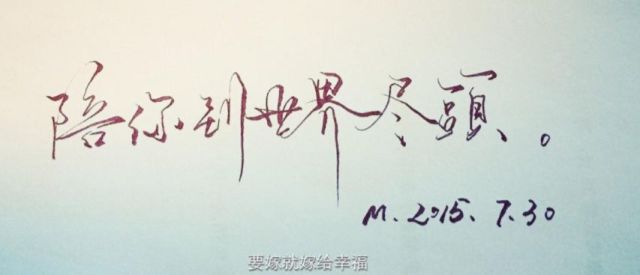 陪你到世界尽頭。
M. 2015. 7.30
要嫁就嫁给幸福